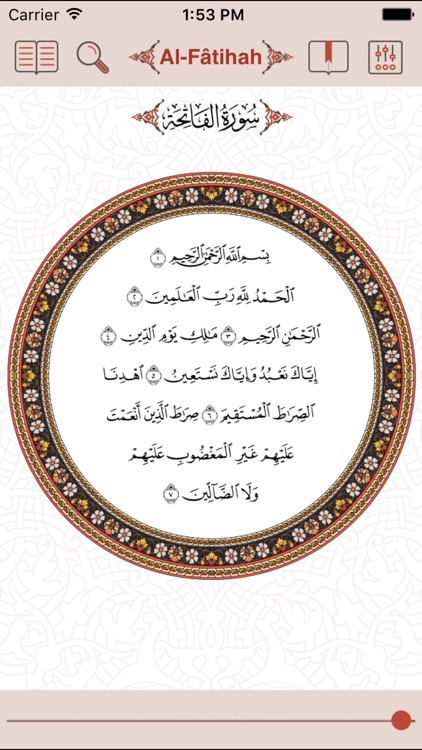 Carrier 1:53 PM
Al-Fâtihah
سُورَةُ الفَاتِحَةِ
بِسْمِ ٱللَّهِ ٱلرَّحْمَٰنِ ٱلرَّحِيمِ ١
ٱلْحَمْدُ لِلَّهِ رَبِّ ٱلْعَٰلَمِينَ ٢
ٱلرَّحْمَٰنِ ٱلرَّحِيمِ ٣ مَٰلِكِ يَوْمِ ٱلدِّينِ ٤
إِيَّاكَ نَعْبُدُ وَإِيَّاكَ نَسْتَعِينُ ٥ ٱهْدِنَا
ٱلصِّرَٰطَ ٱلْمُسْتَقِيمَ ٦ صِرَٰطَ ٱلَّذِينَ أَنْعَمْتَ
عَلَيْهِمْ غَيْرِ ٱلْمَغْضُوبِ عَلَيْهِمْ
وَلَا ٱلضَّآلِّينَ ٧